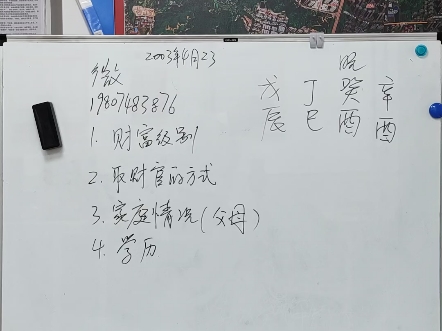 2003年4月23
微
19807483876
1. 财富级别
2. 取财官的方式
3. 家庭情况(父母)
4. 学历
戊 丁 癸 辛
辰 巳 酉 酉